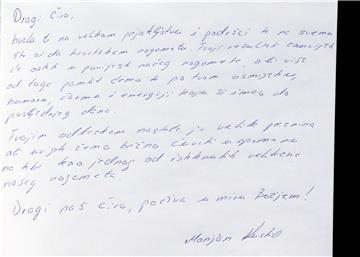 Dragi Ćiro,
hvala ti na velikom prijateljstvu i podršci te na svemu
što si dao hrvatskom nogometu. Tvoji rezultati zauvijek
će ostati u povijesti našeg nogometa, ali više
od toga pamtit ćemo te po tvom osmijehu,
humoru, šarmu i energiji koju si imao do
posljednjeg dana.
Tvojim odlaskom nastala je velika praznina
ali uvijek ćemo brižno čuvati uspomenu
na tebe kao jednog od istinskih velikana
našeg nogometa.
Dragi naš Ćiro, počivao u miru Božjem!
Marijan Kustić